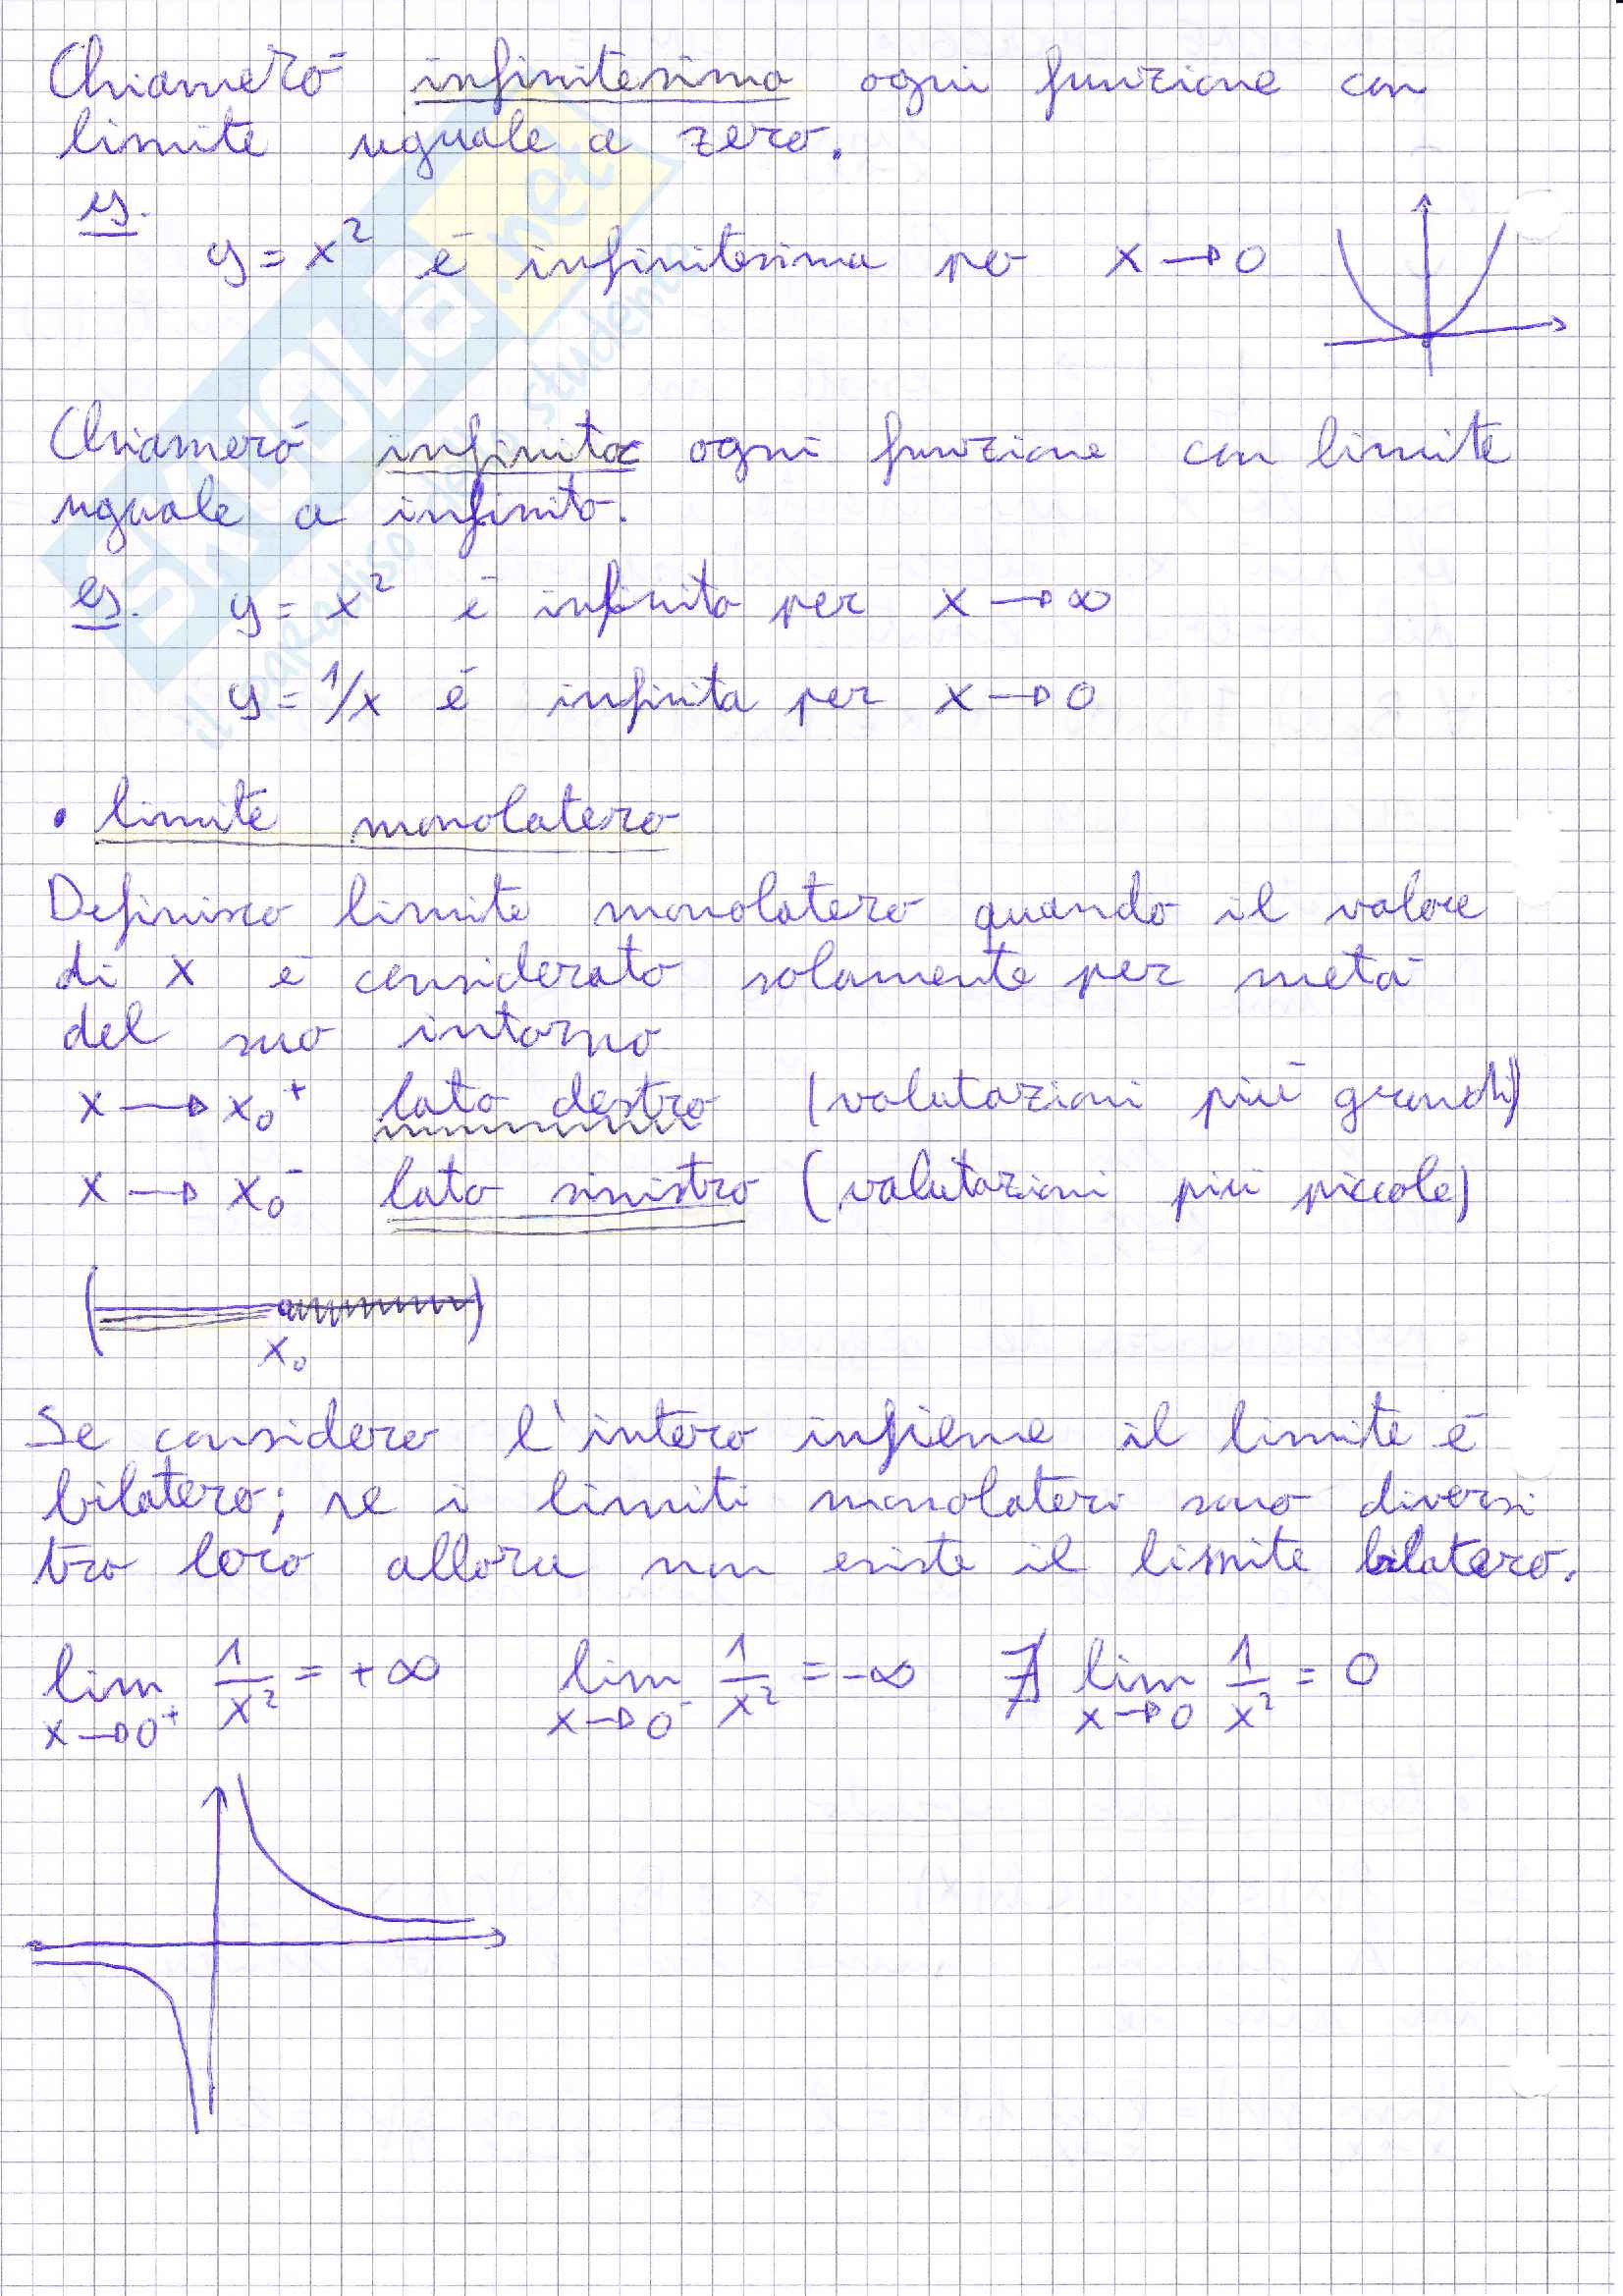 Chiamerò infinitesima ogni funzione con
limite uguale a zero.
es.
y = x² è infinitesima per x → 0
Chiamerò infinita ogni funzione con limite
uguale a infinito.
es. y = x² è infinita per x → ∞
y = 1/x è infinita per x → 0
• limite monolatero
Definisco limite monolatero quando il valore
di x è considerato solamente per metà
del suo intorno
x → x₀⁺ lato destro (valutazioni più grandi)
x → x₀⁻ lato sinistro (valutazioni più piccole)
x₀
Se considero l'intero insieme il limite è
bilatero; se i limiti monolateri sono diversi
tra loro allora non esiste il limite bilatero.
lim x→0⁺ 1/x² = +∞ lim x→0⁻ 1/x² = -∞ ∄ lim x→0 1/x² = 0
SKUOLA.net
il paradiso dello studente